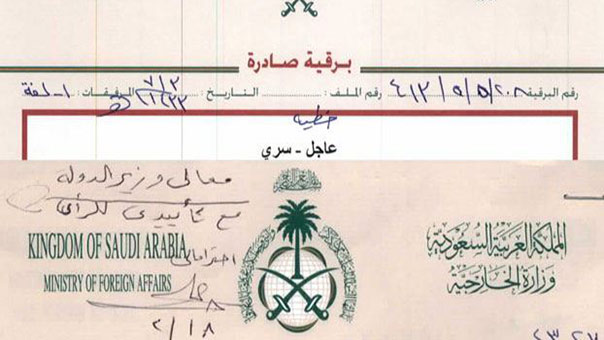 برقية صادرة
رقم البرقية: ٤١٣/٥/٥/٢٠٨ رقم الملف: التاريخ: ٧/٢ المرفقات: ١-لفة
خطية
عاجل - سري
معالي وزير الدولة
مع تأييدي للرأي
احتراماتي
٢/١٨
KINGDOM OF SAUDI ARABIA
MINISTRY OF FOREIGN AFFAIRS
المملكة العربية السعودية
وزارة الخارجية